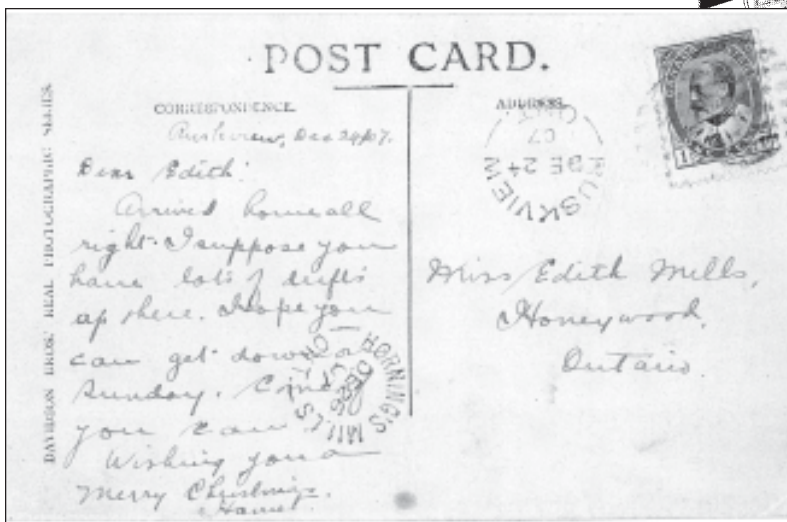 POST CARD.
DAVIDSON BROS.' REAL PHOTOGRAPHIC SERIES.
CORRESPONDENCE.
Ruskview, Dec 24/07.
Dear Edith:
Arrived home all
right. I suppose you
have lots of drifts
up there. Hope you
can get down
Sunday.
you can
Wishing you a
Merry Christmas.
HORNING'S MILLS
DEC 26
ONT
ADDRESS
RUSKVIEW
DE 24
07
ONT
1
Miss Edith Mills,
Honeywood,
Ontario.